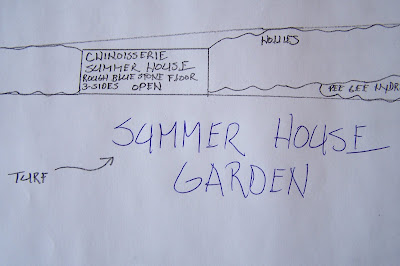 HOLLIES
CHINOISSERIE
SUMMER HOUSE
ROUGH BLUE STONE FLOOR
3-SIDES OPEN
PEE GEE HYDR
SUMMER HOUSE
GARDEN
TURF